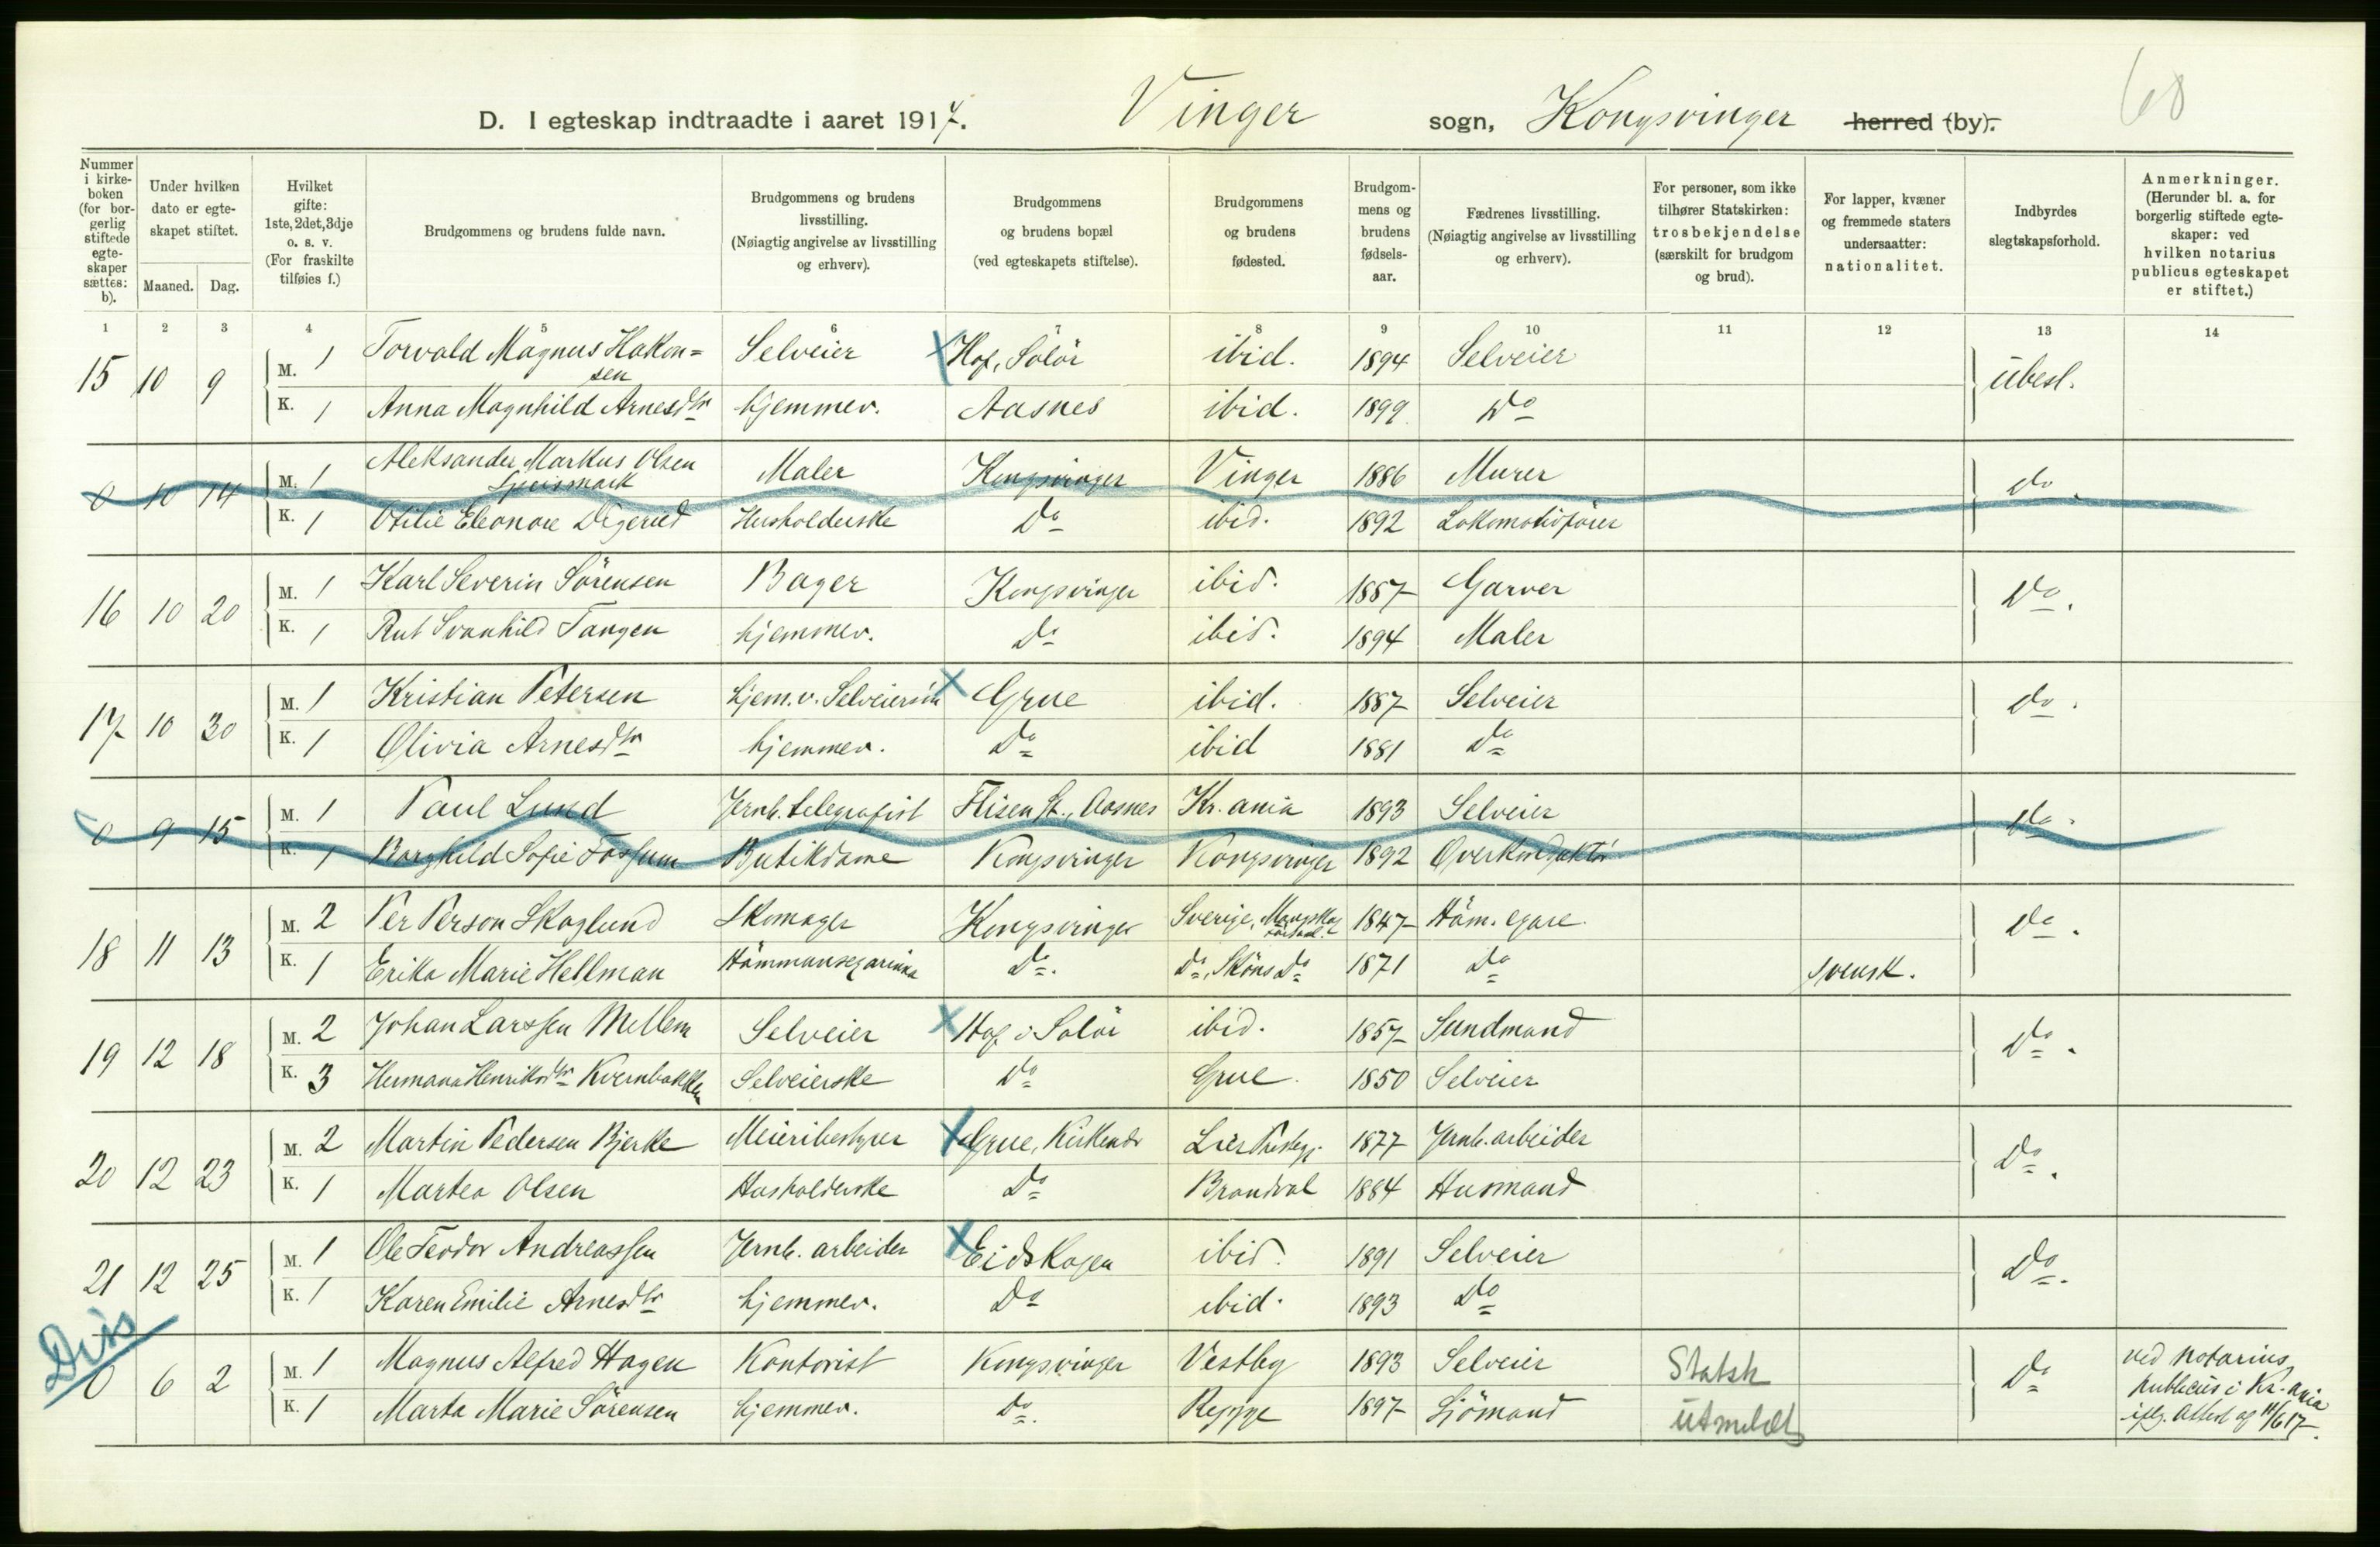 60
D. I egteskap indtraadte i aaret 1917. Vinger sogn, Kongsvinger herred (by).
Nummer i kirkeboken (for borgerlig stiftede egteskaper sættes: b).
Under hvilken dato er egteskapet stiftet. Maaned. Dag.
Hvilket gifte: 1ste, 2det, 3dje o. s. v. (For fraskilte tilføies f.)
Brudgommens og brudens fulde navn.
Brudgommens og brudens livsstilling. (Nøiagtig angivelse av livsstilling og erhverv).
Brudgommens og brudens bopæl (ved egteskapets stiftelse).
Brudgommens og brudens fødested.
Brudgommens og brudens fødselsaar.
Fædrenes livsstilling. (Nøiagtig angivelse av livsstilling og erhverv).
For personer, som ikke tilhører Statskirken: trosbekjendelse (særskilt for brudgom og brud).
For lapper, kvæner og fremmede staters undersaatter: nationalitet.
Indbyrdes slegtskapsforhold.
Anmerkninger. (Herunder bl. a. for borgerlig stiftede egteskaper: ved hvilken notarius publicus egteskapet er stiftet.)
1 2 3 4 5 6 7 8 9 10 11 12 13 14
15 10 9 M. 1 Torvald Magnus Hakonsen Selveier X Hof, Solör ibid. 1894 Selveier übesl.
K. 1 Anna Magnhild Arnesdtr hjemmev. Aasnes ibid. 1899 Do
0 10 14 M. 1 Aleksander Markus Olsen Maler Kongsvinger Vinger 1886 Murer do.
K. 1 Otilie Eleonore Digerud Husholderske Do ibid. 1892 Lokomotivfører
16 10 20 M. 1 Karl Severin Sörensen Bager Kongsvinger ibid. 1887 Garver Do.
K. 1 Rut Svanhild Tangen hjemmev. Do ibid. 1894 Maler
17 10 30 M. 1 Kristian Petersen hjem.v. Selveiersön X Grue ibid. 1887 Selveier do.
K. 1 Olivia Arnesdtr hjemmev. Do ibid 1881 Do
0 9 15 M. 1 Paul Lund Jernb. telegrafist Flisen St., Aasnes Kr.ania 1893 Selveier do.
K. 1 Borghild Sofie Fossum Butikdame Kongsvinger Kongsvinger 1892 Overkonduktör
18 11 13 M. 2 Per Person Skoglund Skomager Kongsvinger Sverige, 1847 Häm. egare. Do.
K. 1 Erika Marie Hellman Hämmansegarinna Do. Do, Sköns Do 1871 Do svensk.
19 12 18 M. 2 Johan Larssen Mellem Selveier X Hof i Solör ibid. 1857 Sundmand Do.
K. 3 Hermana Henriksdtr Kvernbakken Selveierske Do Grue. 1850 Selveier
20 12 23 M. 2 Martin Pedersen Bjerke Meieribestyrer X Grue, Kirkenær Lier Prestegj. 1877 Jernb. arbeider Do.
K. 1 Martea Olsen Husholderske Do Brandval 1884 Husmand
21 12 25 M. 1 Ole Teodor Andreassen Jernb. arbeider X Eidskogen ibid. 1891 Selveier Do.
K. 1 Karen Emilie Arnesdtr hjemmev. Do ibid. 1893 Do
Dis
0 6 2 M. 1 Magnus Alfred Hagen Kontorist Kongsvinger Vestby 1893 Selveier Statsk Do ved Notarius publicus i Kr.ania
K. 1 Marta Marie Sörensen hjemmev. Do. Rygge 1897 Sjömand utmeldt iflg. Attest af 11/6 17.